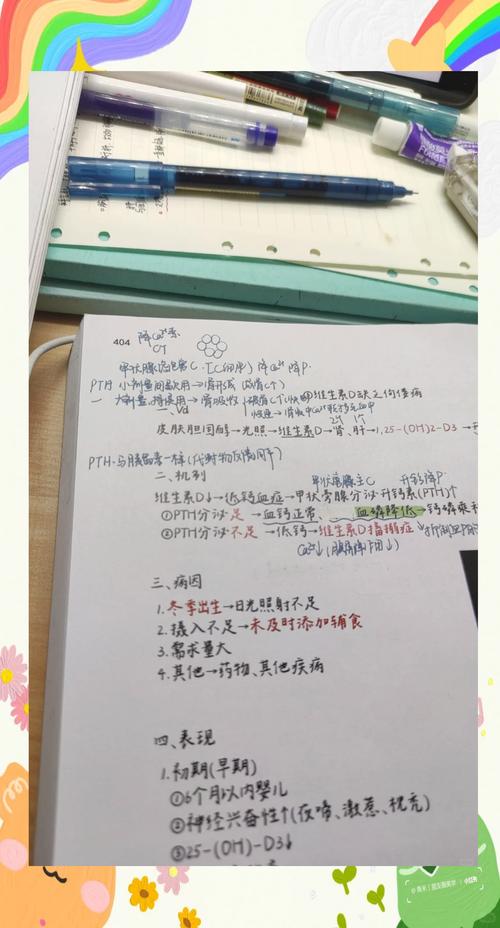 404 降Ca²⁺素
CT
甲状腺滤泡旁C.(C细胞) 降Ca²⁺ 降P.
PTH 小剂量间歇用→骨形成(成骨C↑)
一 大剂量持续使用→骨吸收(破骨C↑)
维生素D缺乏佝偻病
一、Vd
皮肤胆固醇→光照→维生素D→肾、肝→1,25-(OH)2-D3→
PTH.与胰岛素一样(代谢物反馈调节)
甲状旁腺主C 升钙降P
二、机制
维生素D↓→低钙血症→甲状旁腺分泌升钙素(PTH)↑
①PTH分泌足→血钙正常、血磷降低→钙磷乘积
②PTH分泌不足→低钙→维生素D搐搦症
三、病因
1.冬季出生→日光照射不足
2.摄入不足→未及时添加辅食
3.需求量大
4.其他→药物、其他疾病
四、表现
1.初期(早期)
①6个月以内婴儿
②神经兴奋性↑(夜啼、激惹、枕秃)
③25-(OH)-D3↓